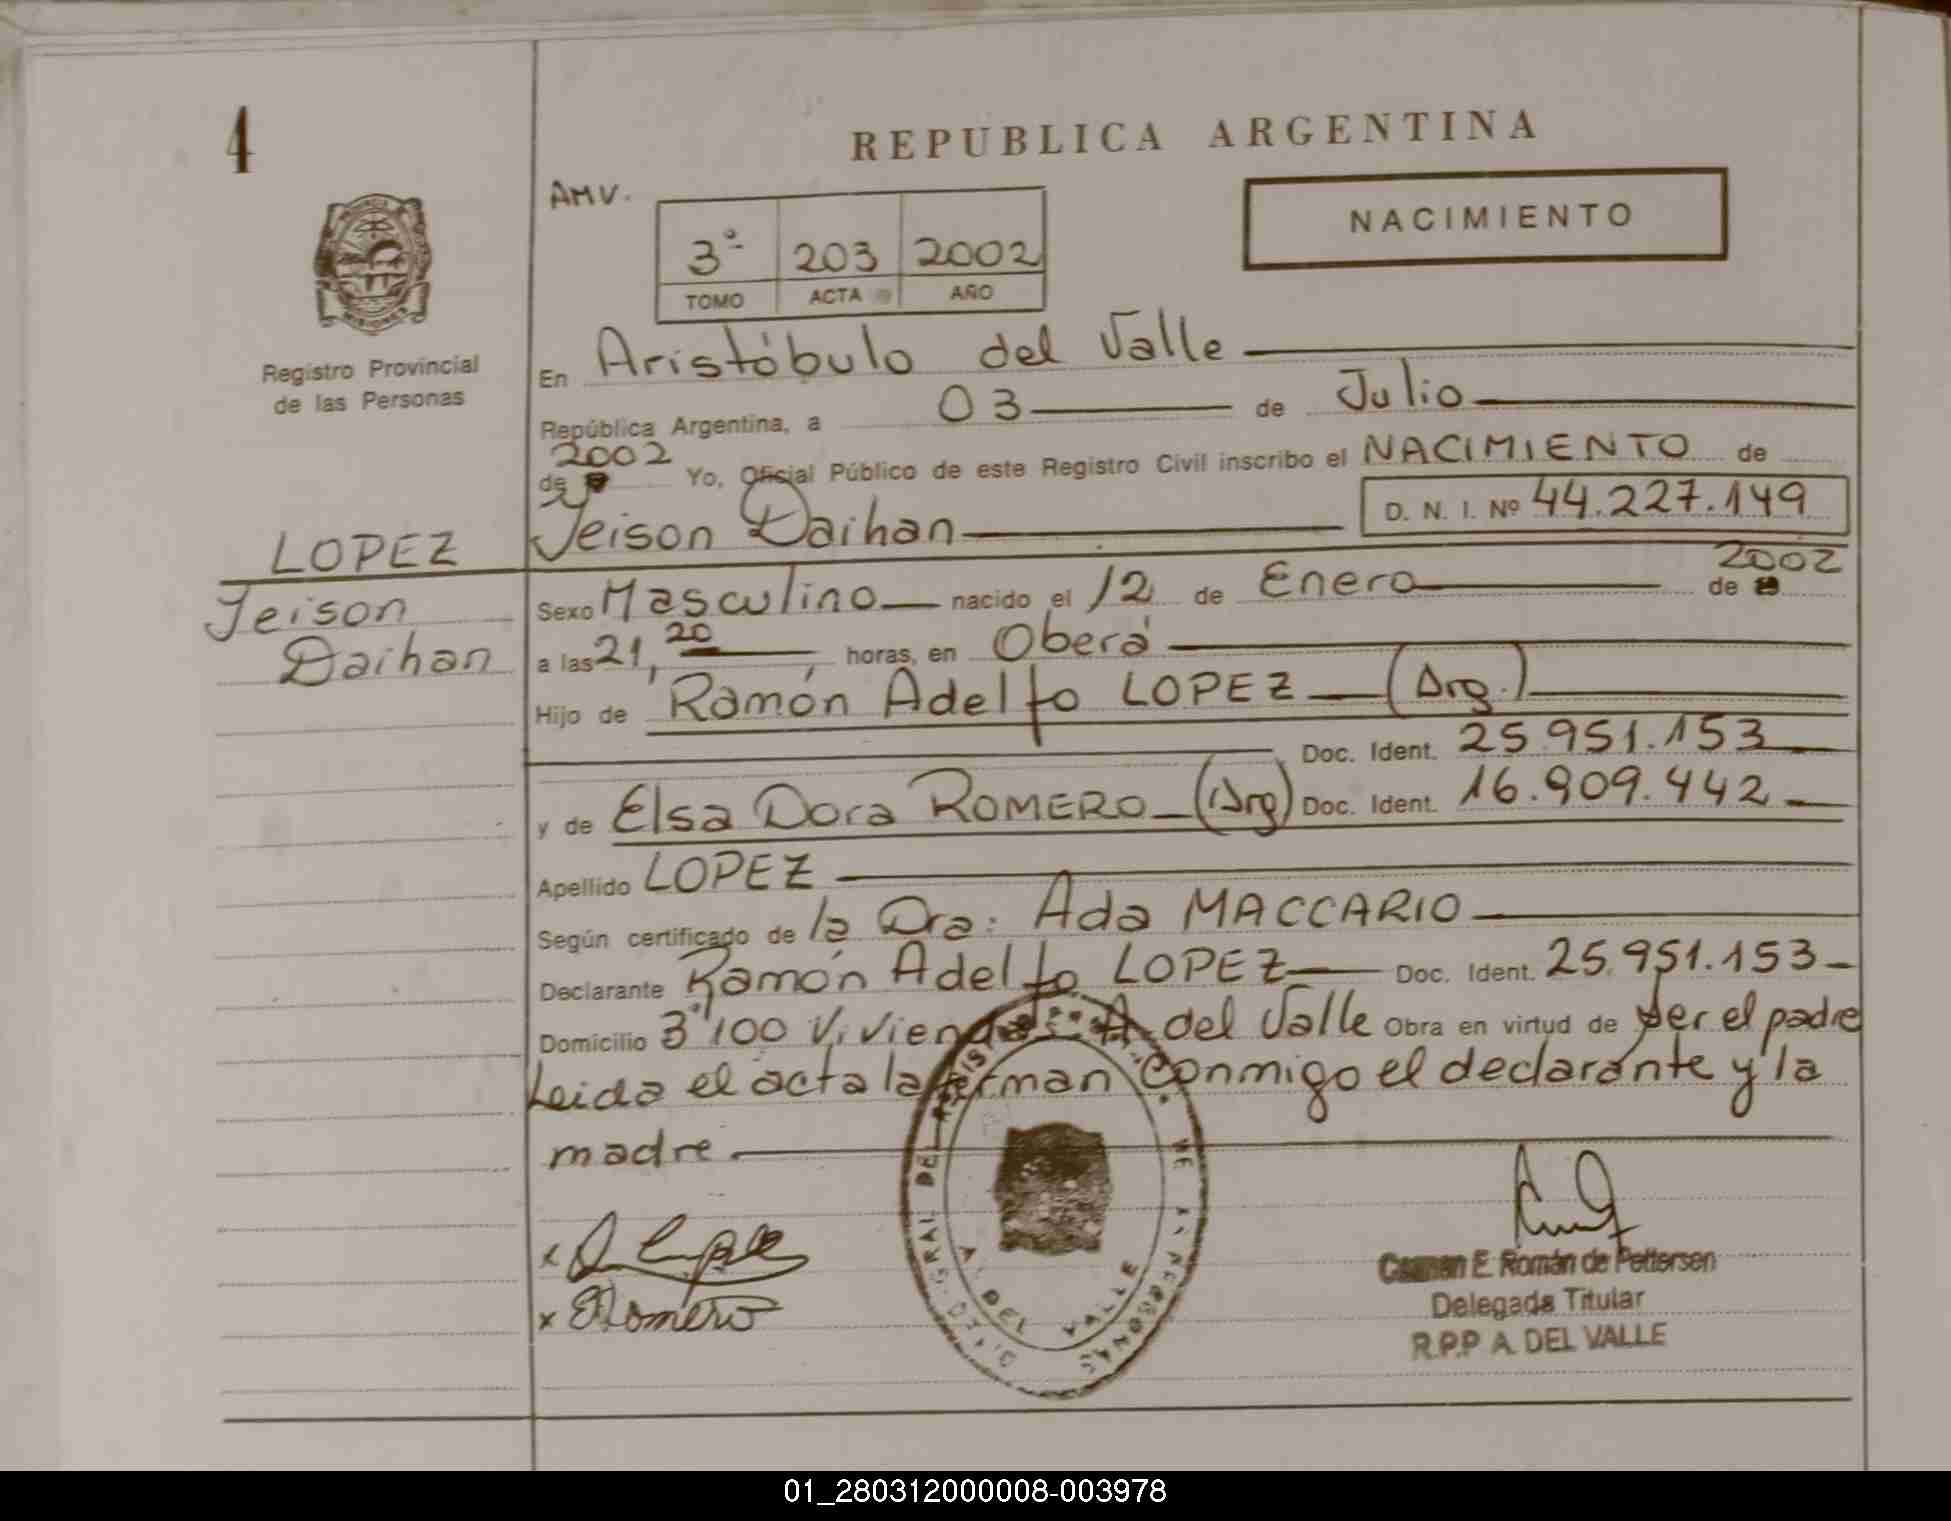 4
REPUBLICA ARGENTINA
AMV.
NACIMIENTO
3º 203 2002
TOMO ACTA AÑO
MISIONES
Registro Provincial
de las Personas
En Aristóbulo del Valle
República Argentina, a 03 de Julio
2002
de Yo, Oficial Público de este Registro Civil inscribo el NACIMIENTO de
D. N. I. Nº 44.227.149
Jeison Daihan
LOPEZ
Jeison
Daihan
2002
Sexo Masculino nacido el 12 de Enero de
a las 21,20 horas, en Oberá
Hijo de Ramón Adelfo LOPEZ (Arg.)
Doc. Ident. 25.951.153
y de Elsa Dora ROMERO (Arg) Doc. Ident. 16.909.442
Apellido LOPEZ
Según certificado de la Dra: Ada MACCARIO
Declarante Ramón Adelfo LOPEZ Doc. Ident. 25.951.153
Domicilio 3º 100 Viviendas A. del Valle Obra en virtud de ser el padre
Leida el acta la firman conmigo el declarante y la
madre
x
x ERomero
A. DEL VALLE
Carmen E. Román de Pettersen
Delegada Titular
R.P.P A. DEL VALLE
01_280312000008-003978